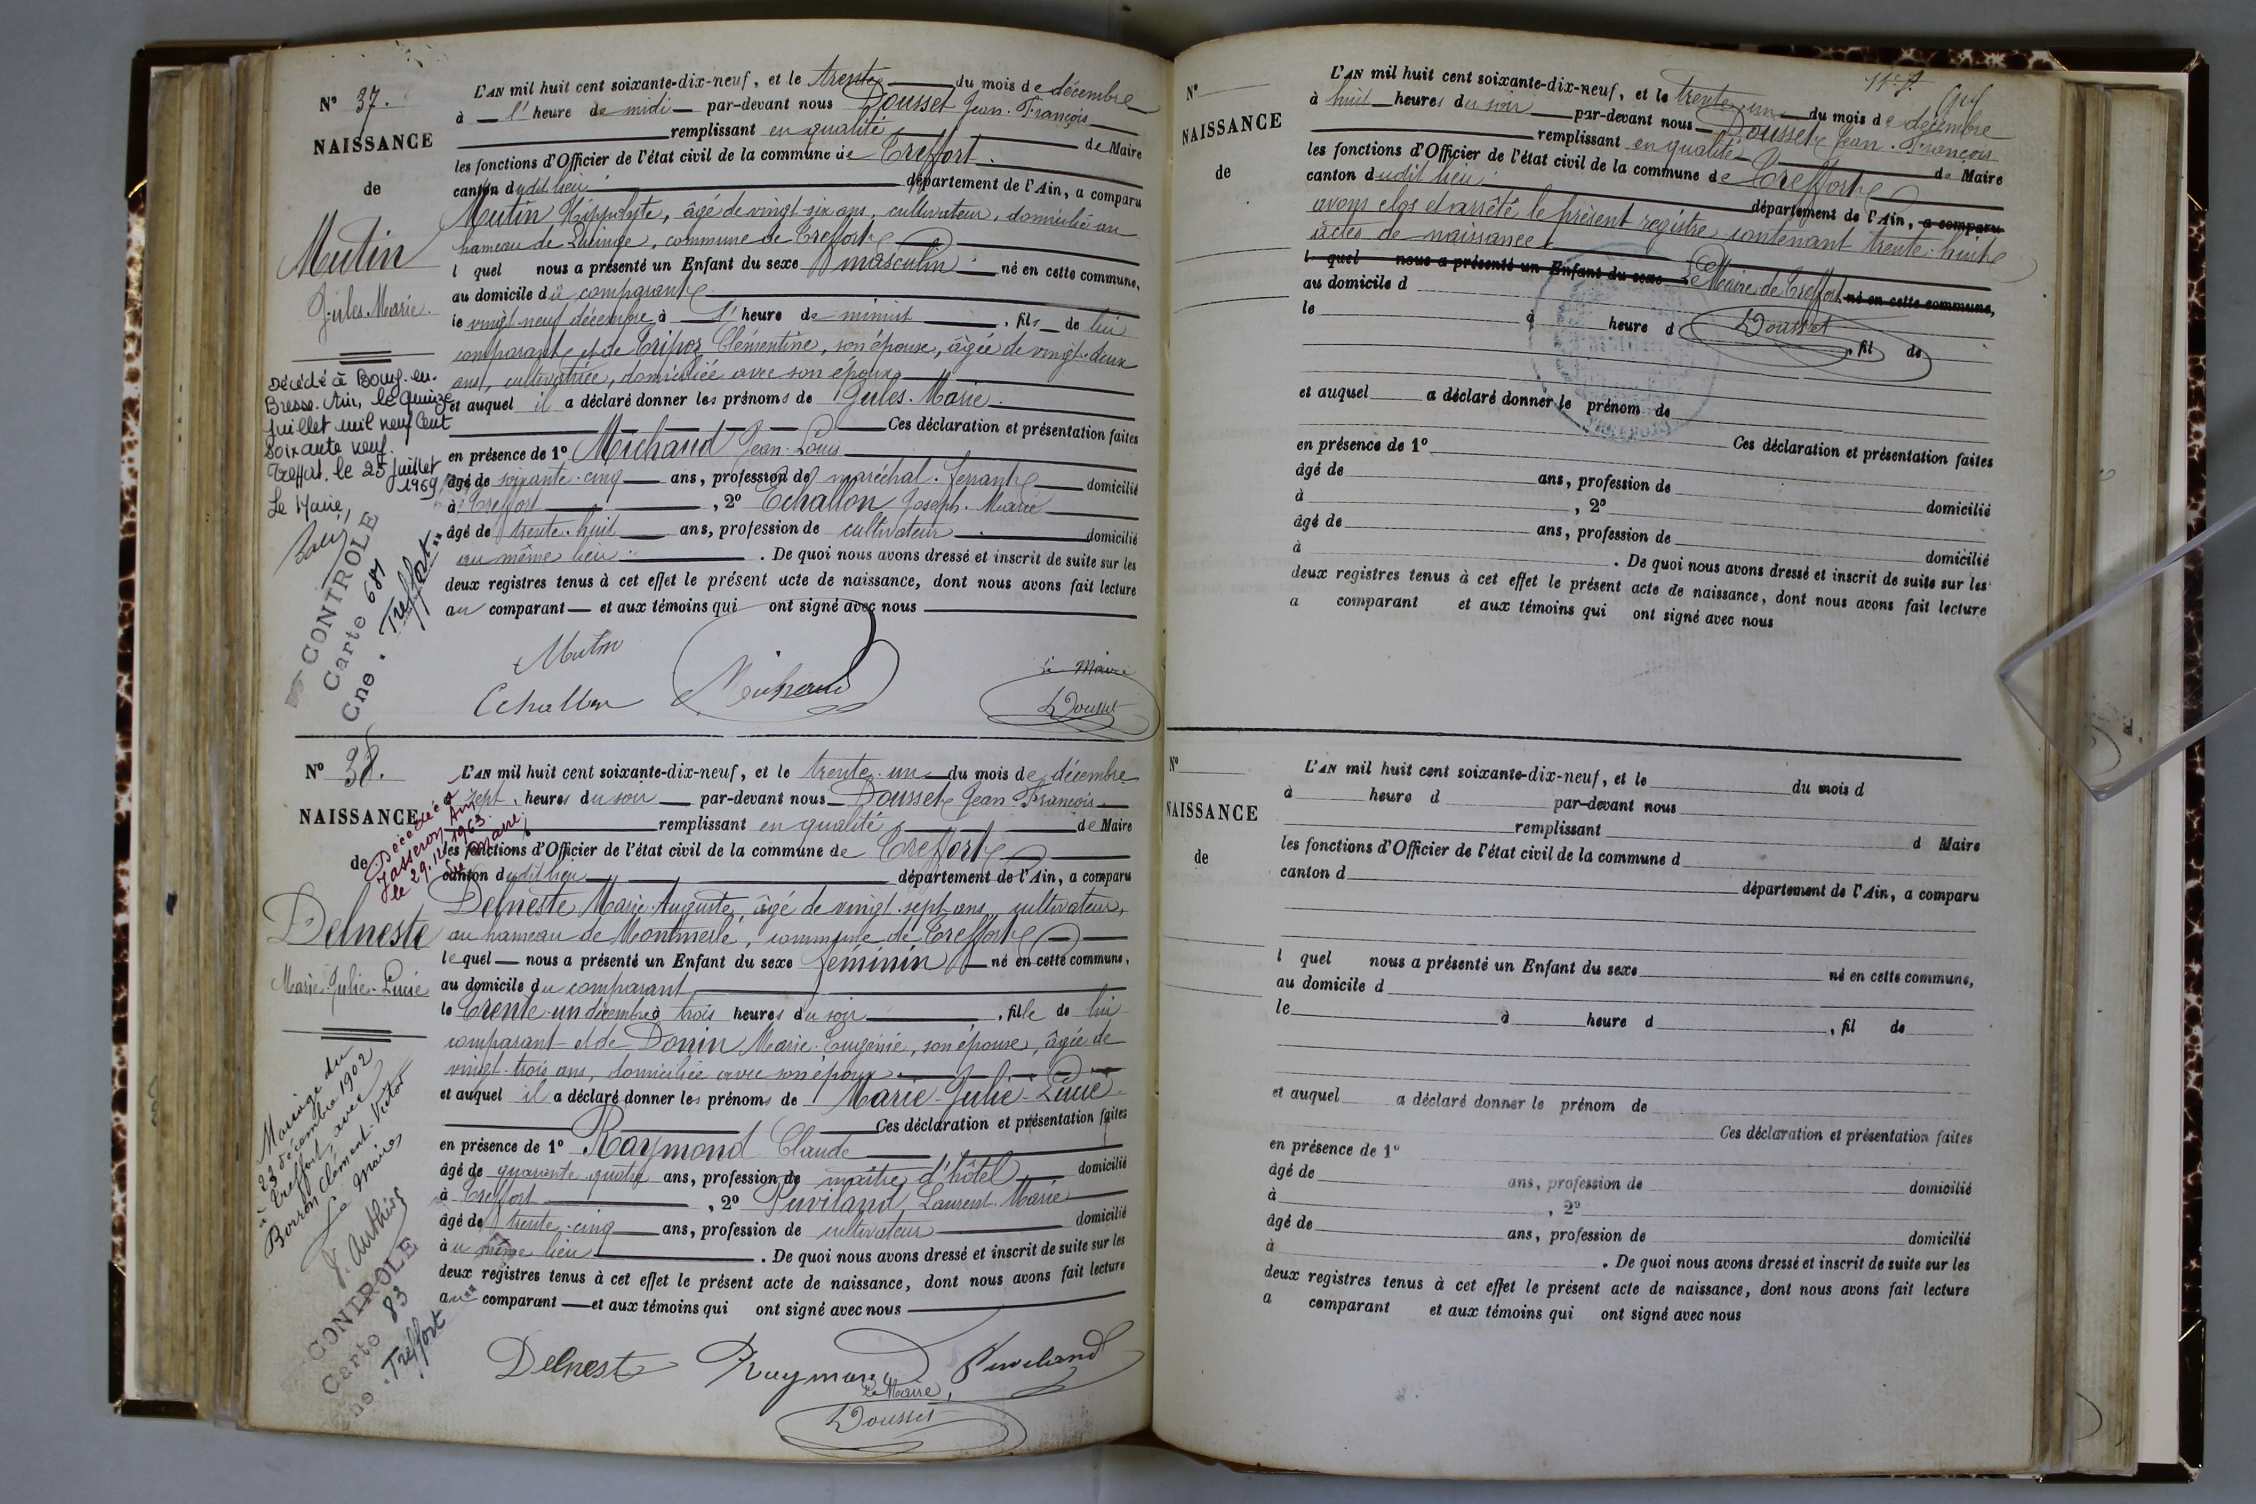 N° 37.
NAISSANCE
de
Mutin
Jules-Marie.
Décédé à Bourg-en-
Bresse. Ain, le quinze
juillet mil neuf cent
soixante neuf.
Treffort, le 25 juillet
1969
Le Maire,
CONTROLE
Carte 681
Cne. Treffort
L'AN mil huit cent soixante-dix-neuf, et le trente du mois de décembre
à l'heure de midi par-devant nous Dousset Jean-François
remplissant en qualité de Maire
les fonctions d'Officier de l'état civil de la commune de Treffort.
canton dudit lieu département de l'Ain, a comparu
Mutin Hippolyte, âgé de vingt six ans, cultivateur, domicilié au
hameau de Lucinge, commune de Treffort
l quel nous a présenté un Enfant du sexe masculin né en cette commune,
au domicile du comparant
le vingt-neuf décembre à l'heure de minuit, fils de lui
comparant et de Tripoz Clémentine, son épouse, âgée de vingt-deux
ans, cultivatrice, domiciliée avec son époux
et auquel il a déclaré donner les prénoms de Jules-Marie.
Ces déclaration et présentation faites
en présence de 1° Michaud Jean-Louis
âgé de soixante-cinq ans, profession de maréchal-ferrant domicilié
à Treffort, 2° Echallon Joseph-Marie
âgé de trente-huit ans, profession de cultivateur domicilié
au même lieu. De quoi nous avons dressé et inscrit de suite sur les
deux registres tenus à cet effet le présent acte de naissance, dont nous avons fait lecture
au comparant et aux témoins qui ont signé avec nous
Mutin
Echallon Michaud
Le Maire
Dousset
N° 38.
NAISSANCE
de
Décédée à
Jasseron Ain
le 29.12.1963.
Le Maire,
Delneste
Marie-Julie-Lucie
Mariage du
23 décembre 1902
à Treffort, avec
Borron Clément-Victor
Le Maire,
CONTROLE
Carte 83
Cne. Treffort
L'AN mil huit cent soixante-dix-neuf, et le trente-un du mois de décembre
à sept heures du soir par-devant nous Dousset Jean-François
remplissant en qualité de Maire
les fonctions d'Officier de l'état civil de la commune de Treffort
canton dudit lieu département de l'Ain, a comparu
Delneste Marie-Auguste, âgé de vingt-sept ans, cultivateur,
au hameau de Montmerle, commune de Treffort
lequel nous a présenté un Enfant du sexe féminin né en cette commune,
au domicile du comparant
le trente-un décembre à trois heures du soir, fille de lui
comparant et de Donin Marie-Eugénie, son épouse, âgée de
vingt-trois ans, domiciliée avec son époux
et auquel il a déclaré donner les prénoms de Marie-Julie-Lucie
Ces déclaration et présentation faites
en présence de 1° Raymond Claude
âgé de quarante-quatre ans, profession de maître d'hôtel domicilié
à Treffort, 2° Puviland Laurent-Marie
âgé de trente-cinq ans, profession de cultivateur domicilié
au même lieu. De quoi nous avons dressé et inscrit de suite sur les
deux registres tenus à cet effet le présent acte de naissance, dont nous avons fait lecture
au comparant et aux témoins qui ont signé avec nous
Delneste Raymond Puviland
Le Maire,
Dousset
N°
NAISSANCE
de
L'AN mil huit cent soixante-dix-neuf, et le trente-un du mois de décembre
à huit heures du soir par-devant nous Dousset Jean-François
remplissant en qualité de Maire
les fonctions d'Officier de l'état civil de la commune de Treffort
canton dudit lieu département de l'Ain, a comparu
avons clos et arrêté le présent registre contenant trente-huit
actes de naissance
l quel nous a présenté un Enfant du sexe Le Maire de Treffort né en cette commune,
au domicile d
le à heure d Dousset, fil de
et auquel a déclaré donner le prénom de
Ces déclaration et présentation faites
en présence de 1°
âgé de ans, profession de domicilié
à , 2°
âgé de ans, profession de domicilié
à . De quoi nous avons dressé et inscrit de suite sur les
deux registres tenus à cet effet le présent acte de naissance, dont nous avons fait lecture
a comparant et aux témoins qui ont signé avec nous
N°
NAISSANCE
de
L'AN mil huit cent soixante-dix-neuf, et le du mois d
à heure d par-devant nous
remplissant d Maire
les fonctions d'Officier de l'état civil de la commune d
canton d département de l'Ain, a comparu
l quel nous a présenté un Enfant du sexe né en cette commune,
au domicile d
le à heure d , fil de
et auquel a déclaré donner le prénom de
Ces déclaration et présentation faites
en présence de 1°
âgé de ans, profession de domicilié
à , 2°
âgé de ans, profession de domicilié
à . De quoi nous avons dressé et inscrit de suite sur les
deux registres tenus à cet effet le présent acte de naissance, dont nous avons fait lecture
a comparant et aux témoins qui ont signé avec nous